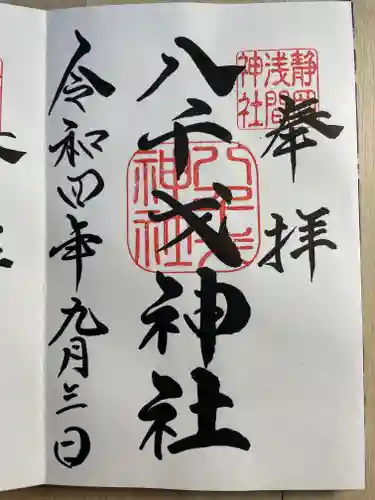 奉拝
静岡浅間神社
八千戈神社
八千戈神社
令和四年九月三日